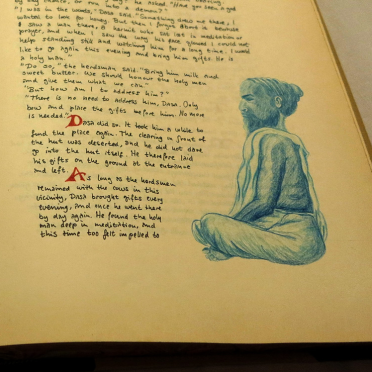 by any chance, or run into a demon?"
"I was in the woods," Dasa said. "Something drew me there, I
wanted to look for honey. But then I forgot about it because
I saw a man there, a hermit who sat lost in meditation or
prayer, and when I saw the way his face glowed I could not
help standing still and watching him for a long time. I would
like to go again this evening and bring him gifts. He is
a holy man."
"Do so," the herdsman said. "Bring him milk and
sweet butter. We should honour the holy men
and give them what we can."
"But how am I to address him?"
"There is no need to address him, Dasa. Only
bow and place the gifts before him. No more
is needed."
Dasa did so. It took him a while to
find the place again. The clearing in front of
the hut was deserted, and he did not dare
go into the hut itself. He therefore laid
his gifts on the ground at the entrance
and left.
As long as the herdsmen
remained with the cows in this
vicinity, Dasa brought gifts every
evening, and once he went there
by day again. He found the holy
man deep in meditation, and
this time too felt impelled to